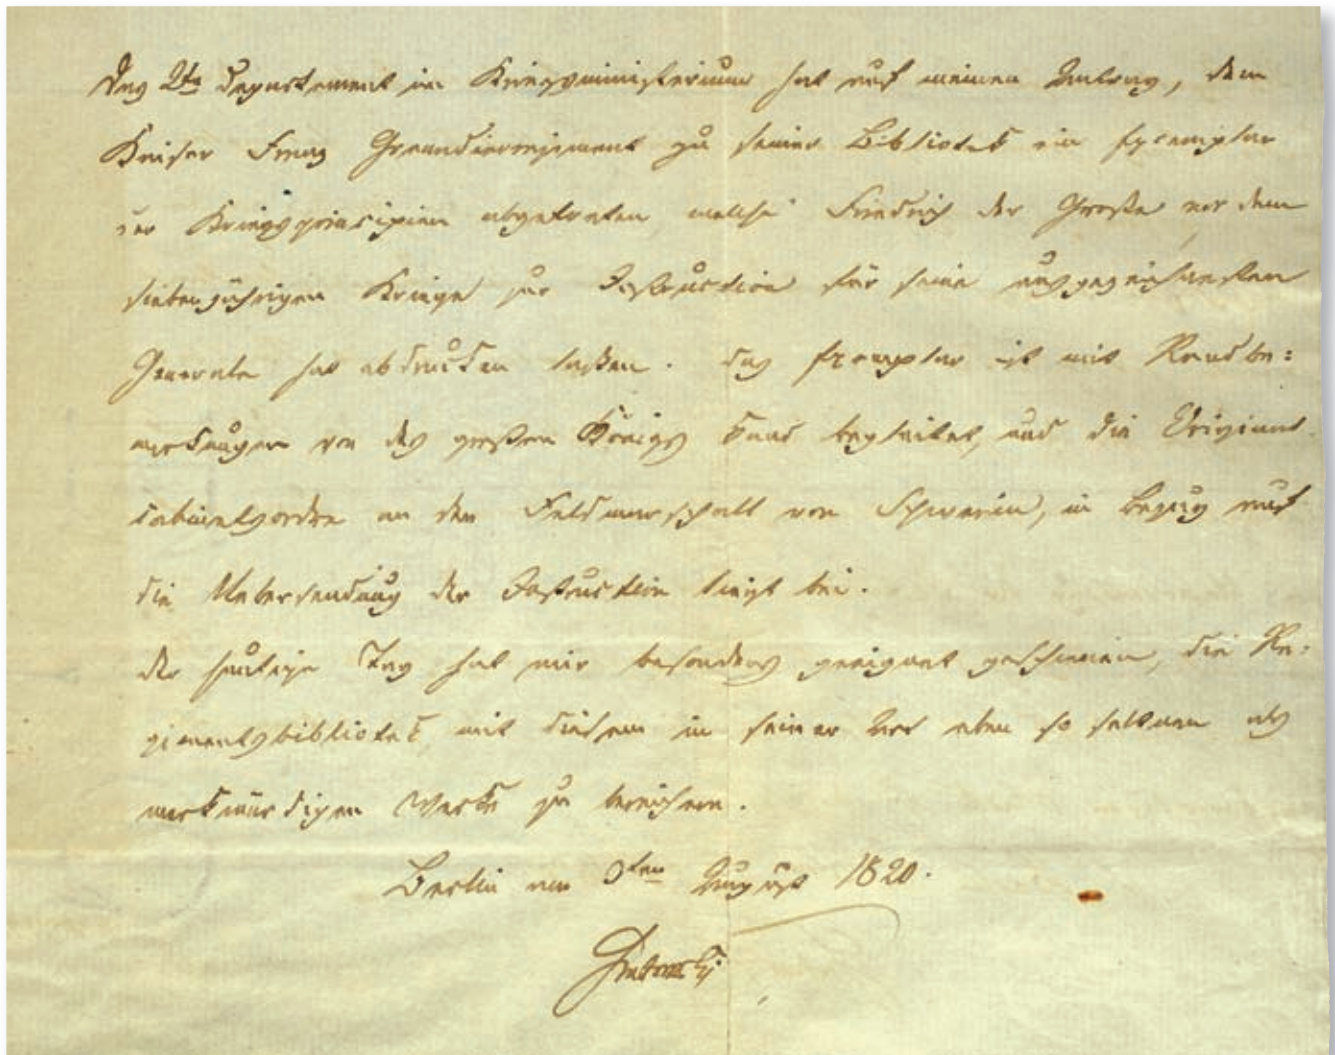 Das 2te Departement im Kriegsministerium hat auf meinen Antrag, dem
Kaiser Franz Grenadierregiment zu seiner Bibliotek ein Exemplar
der Kriegsprincipien abgetreten, welche Friedrich der Große vor dem
siebenjährigen Kriege zur Instruction für seine ausgezeichnesten
Generale hat abdrucken laßen. Das Exemplar ist mit Randbe=
merkungen von des großen Königs Hand begleitet, und die Original
Cabinetsordre an den Feldmarschall von Schwerin, in Bezug auf
die Uebersendung der Instruction liegt bei.
Der heutige Tag hat mir besonders geeignet geschienen, die Re=
gimentsbibliotek mit diesem in seiner Art eben so seltnen als
merkwürdigen Werke zu bereichern.
Berlin am 3ten August 1820.